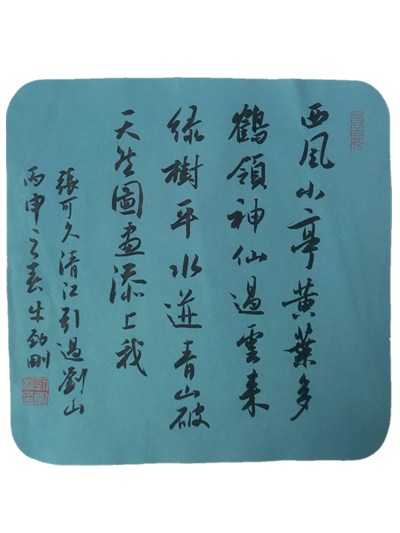 西风小亭黃葉多
鶴領神仙過雲来
绿樹平水迸青山破
天然圖畫添上我
張可久清江引過劉山
丙申之春剛